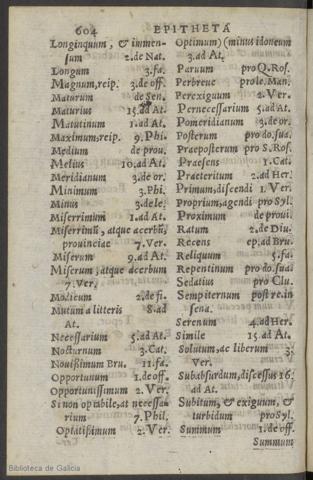 604 EPITHETA
Longinquum, & immen-
sum 2.de Nat.
Longum 3.fa.
Magnum,reip. 3.de off.
Maturum de Sen.
Maturius 15.ad At.
Matutinum 1.ad At.
Maximum,reip. 9.Phi.
Medium de prou.
Melius 10.ad At.
Meridianum 3.de or.
Minimum 3.Phi.
Minus 3.de le.
Miserrimum 1.ad At.
Miserrimū, atque acerbū,
prouinciae 7.Ver.
Miserum 9.ad At.
Miserum, atque acerbum
7.Ver.
Modicum 2.de fi.
Mutum a litteris 8.ad
At.
Necessarium 5.ad At.
Nocturnum 3.Cat.
Nouißimum Bru. 11.fa.
Opportunum 1.de off.
Opportunissimum 2.Ver.
Si non optabile,at necessa-
rium 7.Phil.
Optatißimum 2.Ver.
Optimum) (minus idoneum
3.ad At.
Paruum pro Q.Ros.
Perbreue pro le.Man.
Perexiguum 2.Ver.
Pernecessarium 5.ad At.
Pomeridianum 3.de or.
Posterum pro do.sua.
Praeposterum pro S.Ros.
Praesens 1.Cat.
Praeteritum 2.ad Her.
Primum,discendi 1.Ver.
Proprium,agendi pro Syl.
Proximum de proui.
Ratum 2.de Diu.
Recens ep.ad Bru.
Reliquum 5.fa.
Repentinum pro do.sua.
Sedatius pro Clu.
Sempiternum post re.in
sena.
Serenum 4.ad Her.
Simile 15.ad At.
Solutum, ac liberum 3.
Ver.
Subabsurdum,discessus 16.
ad At.
Subitum, & exiguum, &
turbidum pro Syl.
Summum 1.de off.
Summum
Biblioteca de Galicia